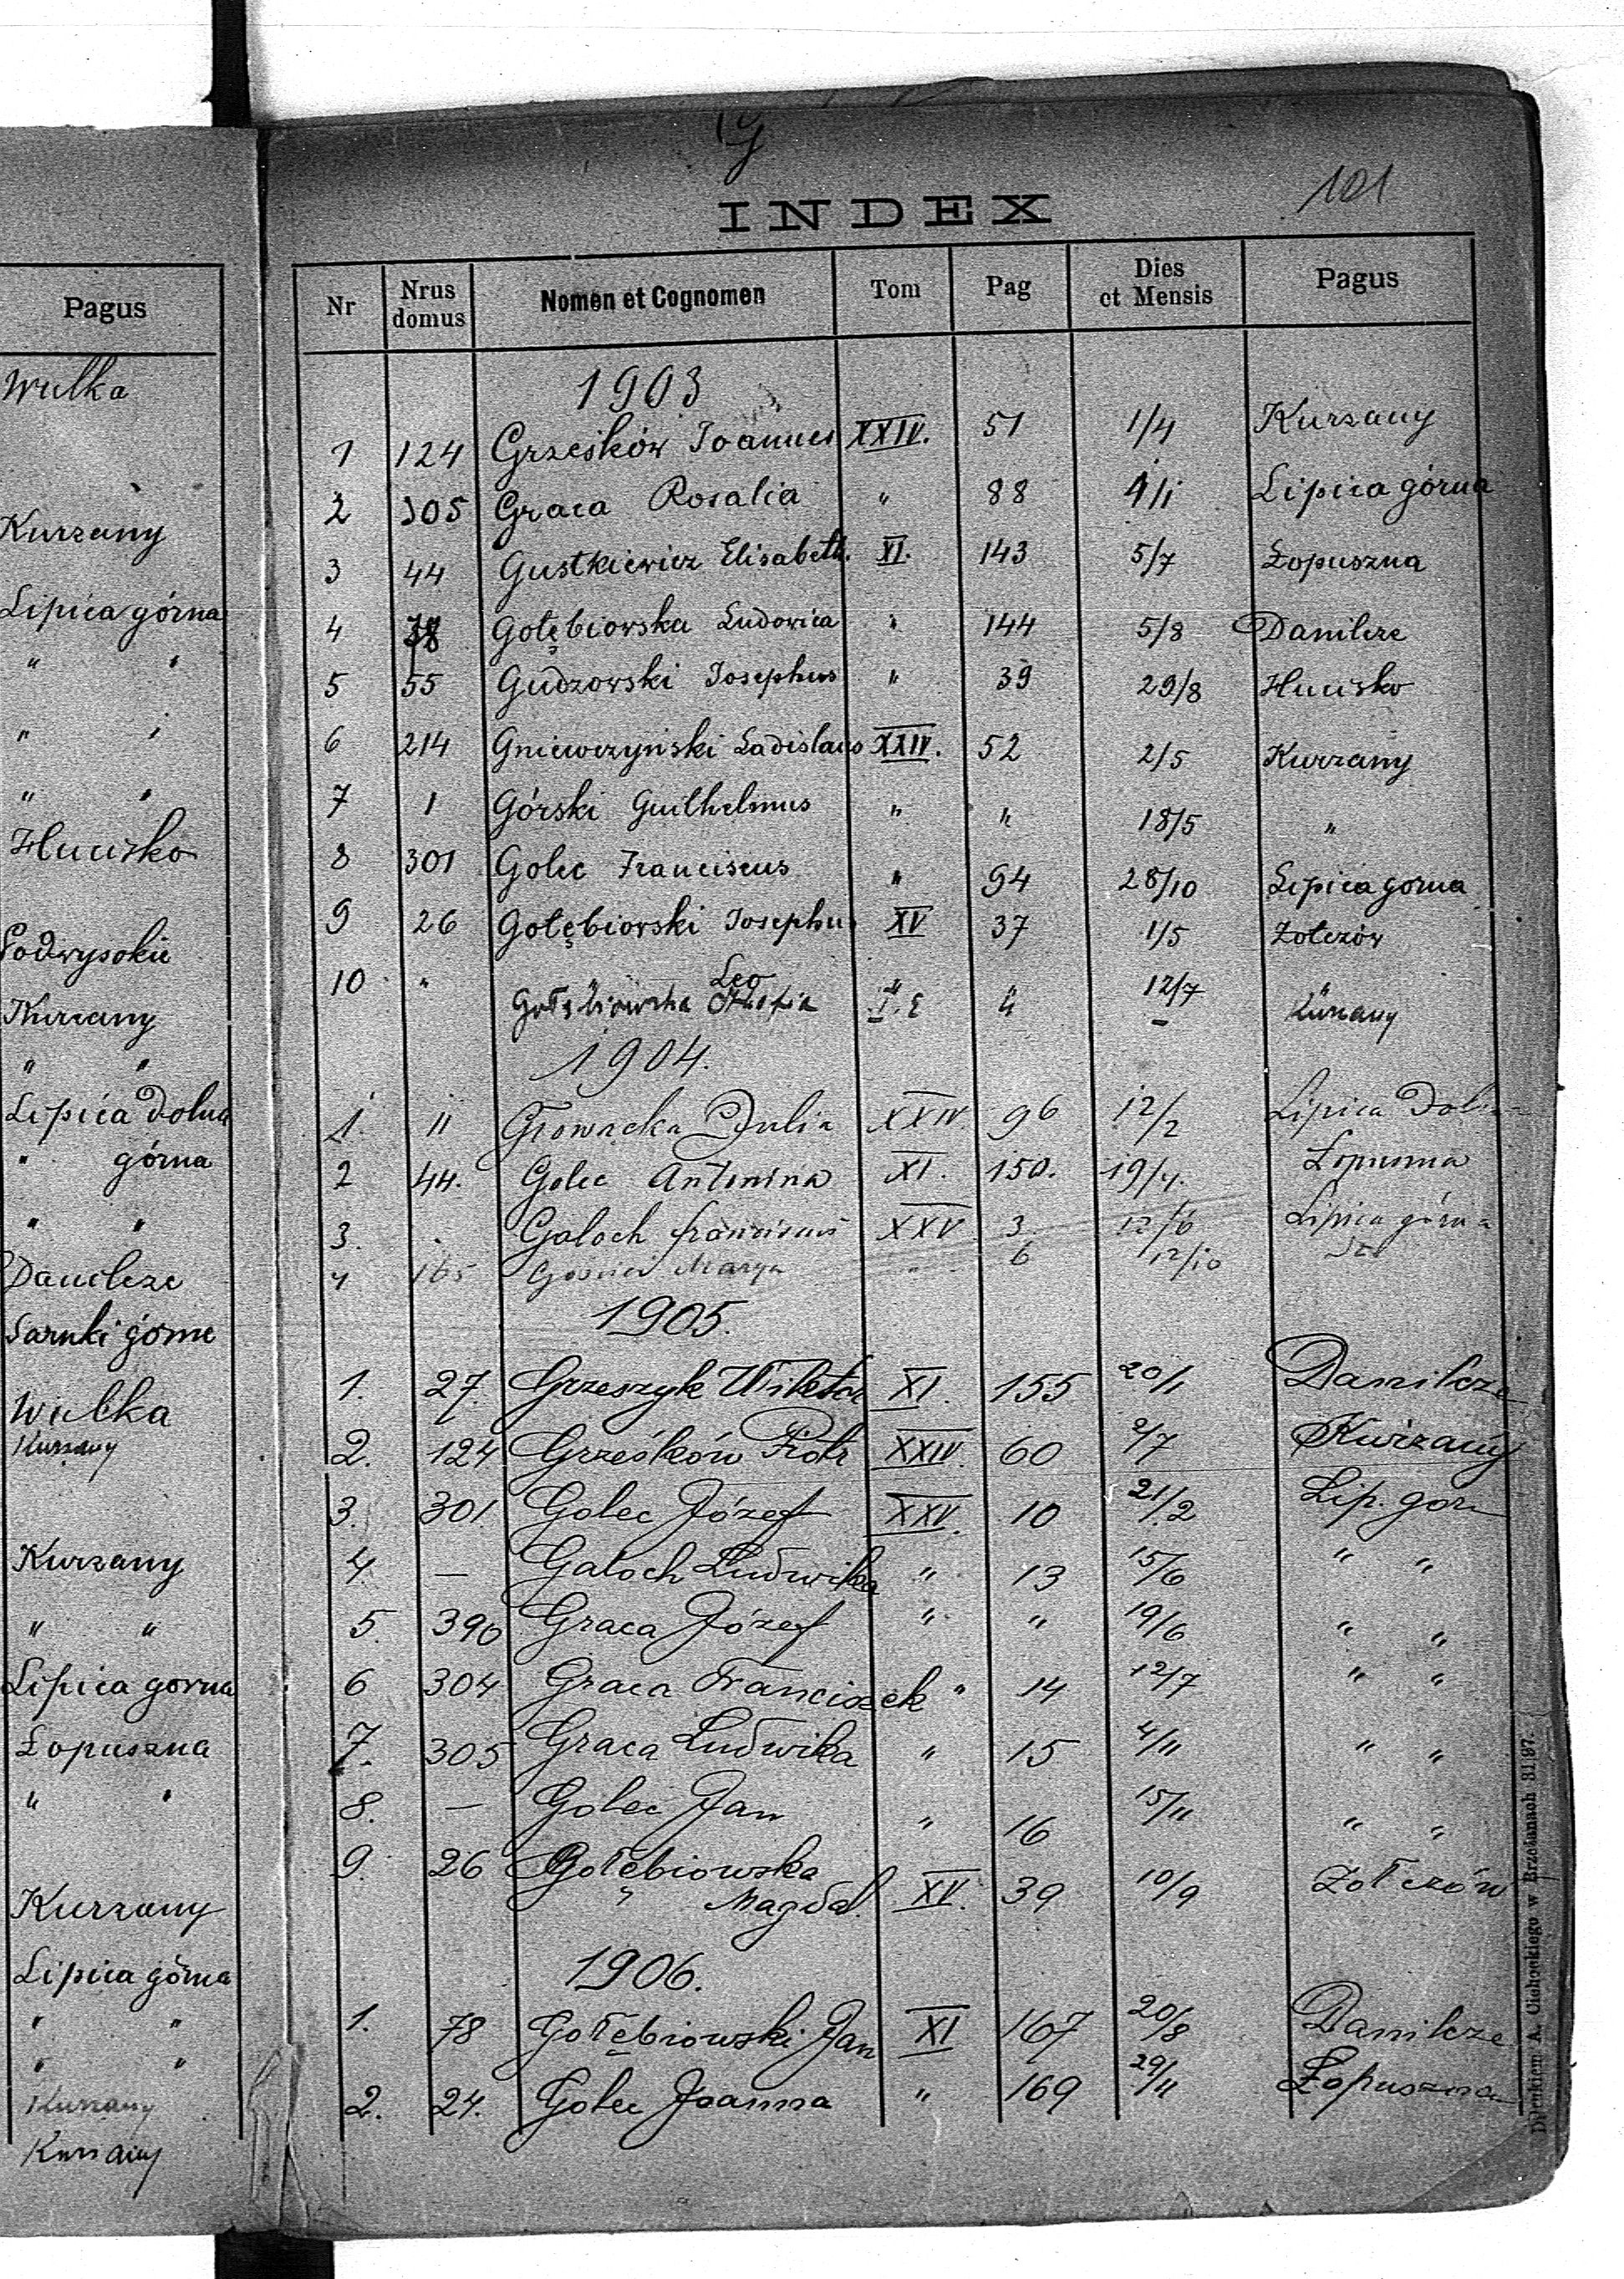 Pagus
Wulka
Kurzany
Lipica górna
" "
" "
" "
Hucisko
Podwysokie
Kurzany
" "
Lipica dolna
" górna
" "
Danilcze
Sarnki górne
Wulka
Kurzany
Kurzany
" "
Lipica gorna
Łopuszna
" "
Kurzany
Lipica górna
" "
" "
Kurzany
Kurzany
G
101
INDEX
Nr Nrus domus Nomen et Cognomen Tom Pag Dies et Mensis Pagus
1903
1 124 Grześków Joannes XXIV. 51 1/4 Kurzany
2 305 Graca Rosalia " 88 4/1 Lipica górna
3 44 Gustkiewicz Elisabeth. XI. 143 5/7 Łopuszna
4 78 Gołębiowska Ludovica " 144 5/8 Danilcze
5 55 Gudzowski Josephus " 39 29/8 Hucisko
6 214 Gniewczyński Ladislaus XXIV. 52 2/5 Kurzany
7 1 Górski Guilhelmus " " 18/5 "
8 301 Golec Franciscus " 94 28/10 Lipica gorna
9 26 Gołębiowski Josephus XV 37 1/5 Żołczów
10 " " Leo " " 12/7 "
Gołębiowska Zhofia I. E - Kurzany
1904.
1. 11 Głowacka Julia XXIV. 96 12/2 Lipica Dolna
2 44. Golec Antonina XI. 150. 19/4. Łopuszna
3. . Galoch franciscus XXV 3 12/6 Lipica górna
4 165 Marya " 6 12/10
1905.
1. 27. Grzeszyk Wiktor XI. 155 20/1 Danilcze
2. 124 Grześków Piotr XXIV. 60 2/7 Kurzany
3. 301. Golec Józef XXV. 10 21/2 Lip. gor.
4. — Galoch Ludwika " 13 15/6 " "
5. 390 Graca Józef " " 19/6 " "
6 304 Graca Franciszek " 14 12/7 " "
7. 305 Graca Ludwika " 15 4/11 " "
8. — Golec Jan " 16 15/11 " "
9. 26 Gołębiowska
Magdal. XV. 39 10/9 Żołczów
1906.
1. 78 Gołębiowski Jan XI 167 20/8 Danilcze
2. 24. Golec Joanna " 169 29/11 Łopuszna
Drukiem A. Cichockiego w Brzeżanach 3197.